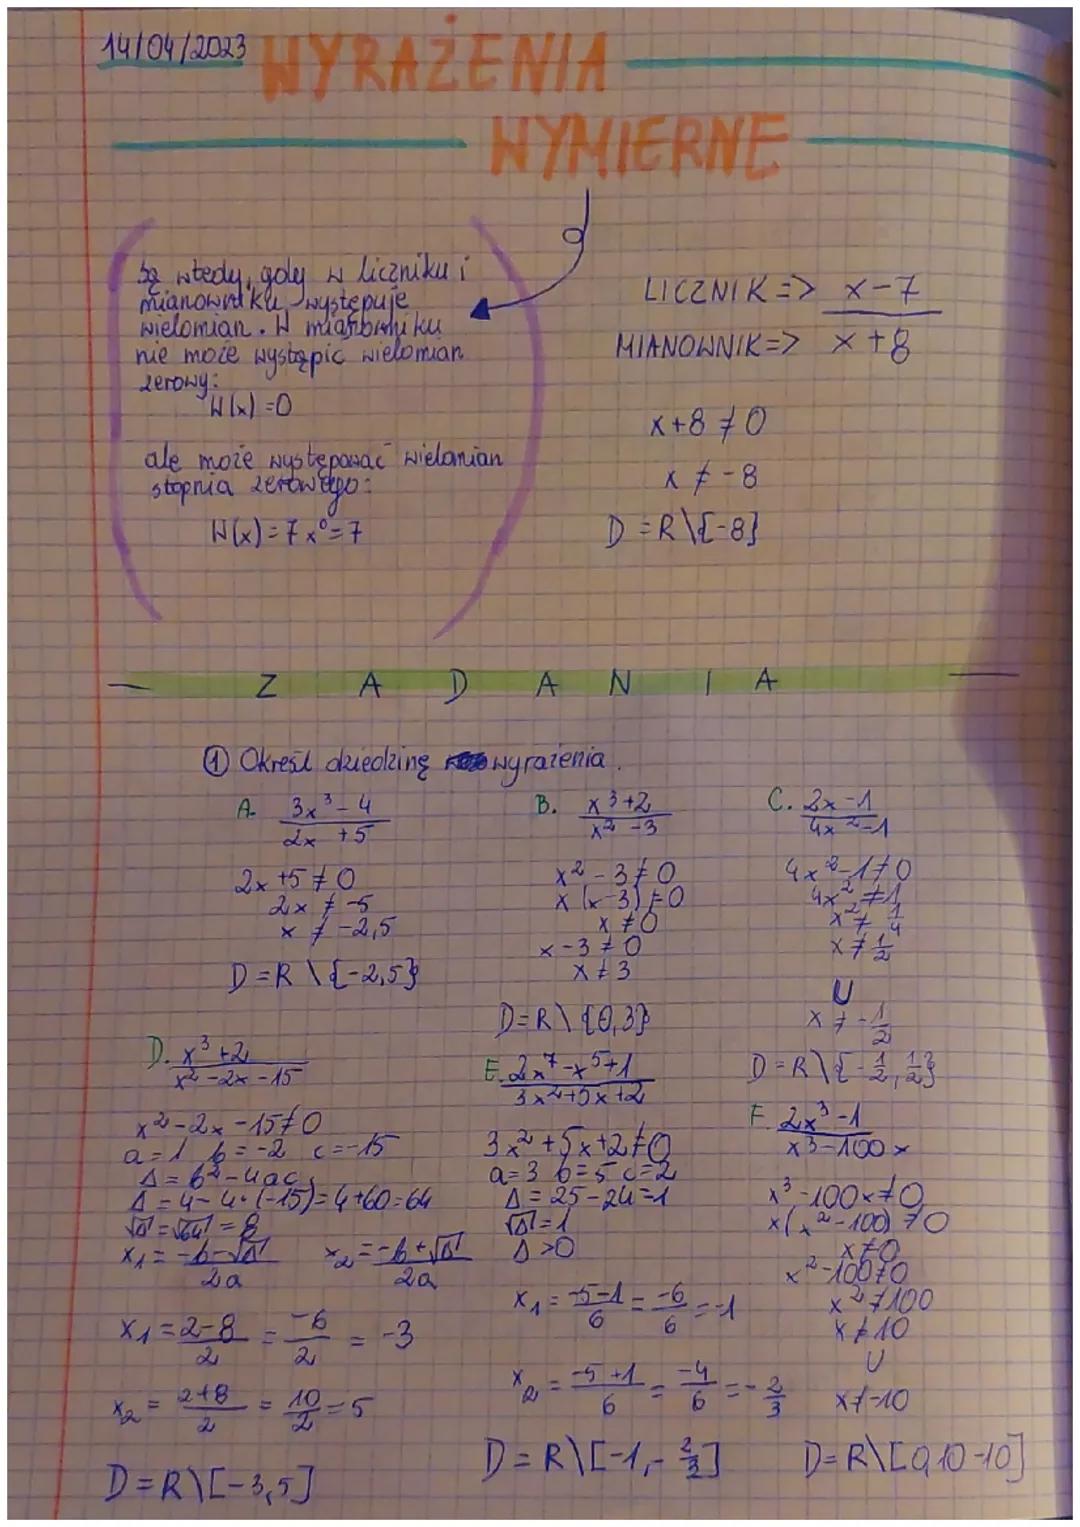 14/04/2023
WYRAŻENIA
WYMIERNE
Są wtedy, gdy w liczniku i
mianowniku występuje
wielomian. W mianowniku
nie może wystąpić wielomian
zerowy:
W(x)=0
ale może występować wielomian
stopnia zerowego:
W(x)=7x⁰=7
LICZNIK => x-7
MIANOWNIK => x+8
x+8≠0
x≠-8
D=R\{-8}
ZADANIA
① Określ dziedzinę wyrażenia.
A. 3x³-4
2x+5
2x+5≠0
2x≠-5
x≠-2,5
D=R\{-2,5}
B. x³+2
x²-3
x²-3≠0
x(x-3)≠0
x≠0
x-3≠0
x≠3
D=R\{0,3}
C. 2x-1
4x²-1
4x²-1≠0
4x²≠1
x²≠1/4
x≠1/2
U
x≠-1/2
D=R\{-1/2,1/2}
D. x³+2
x²-2x-15
x²-2x-15≠0
a=1 b=-2 c=-15
Δ=b²-4ac
Δ=4-4·(-15)=4+60=64
√Δ=√64=8
x₁=(-b-√Δ)/2a x₂=(-b+√Δ)/2a
x₁=(2-8)/2=-6/2=-3
x₂=(2+8)/2=10/2=5
D=R\[-3,5]
E. 2x⁷-x⁵+1
3x²+5x+2
3x²+5x+2≠0
a=3 b=5 c=2
Δ=25-24=1
√Δ=1
Δ>0
x₁=(-5-1)/6=-6/6=-1
x₂=(-5+1)/6=-4/6=-2/3
D=R\[-1,-2/3]
F. 2x³-1
x³-100x
x³-100x≠0
x(x²-100)≠0
x≠0
x²-100≠0
x²≠100
x≠10
U
x≠-10
D=R\[0,10-10]